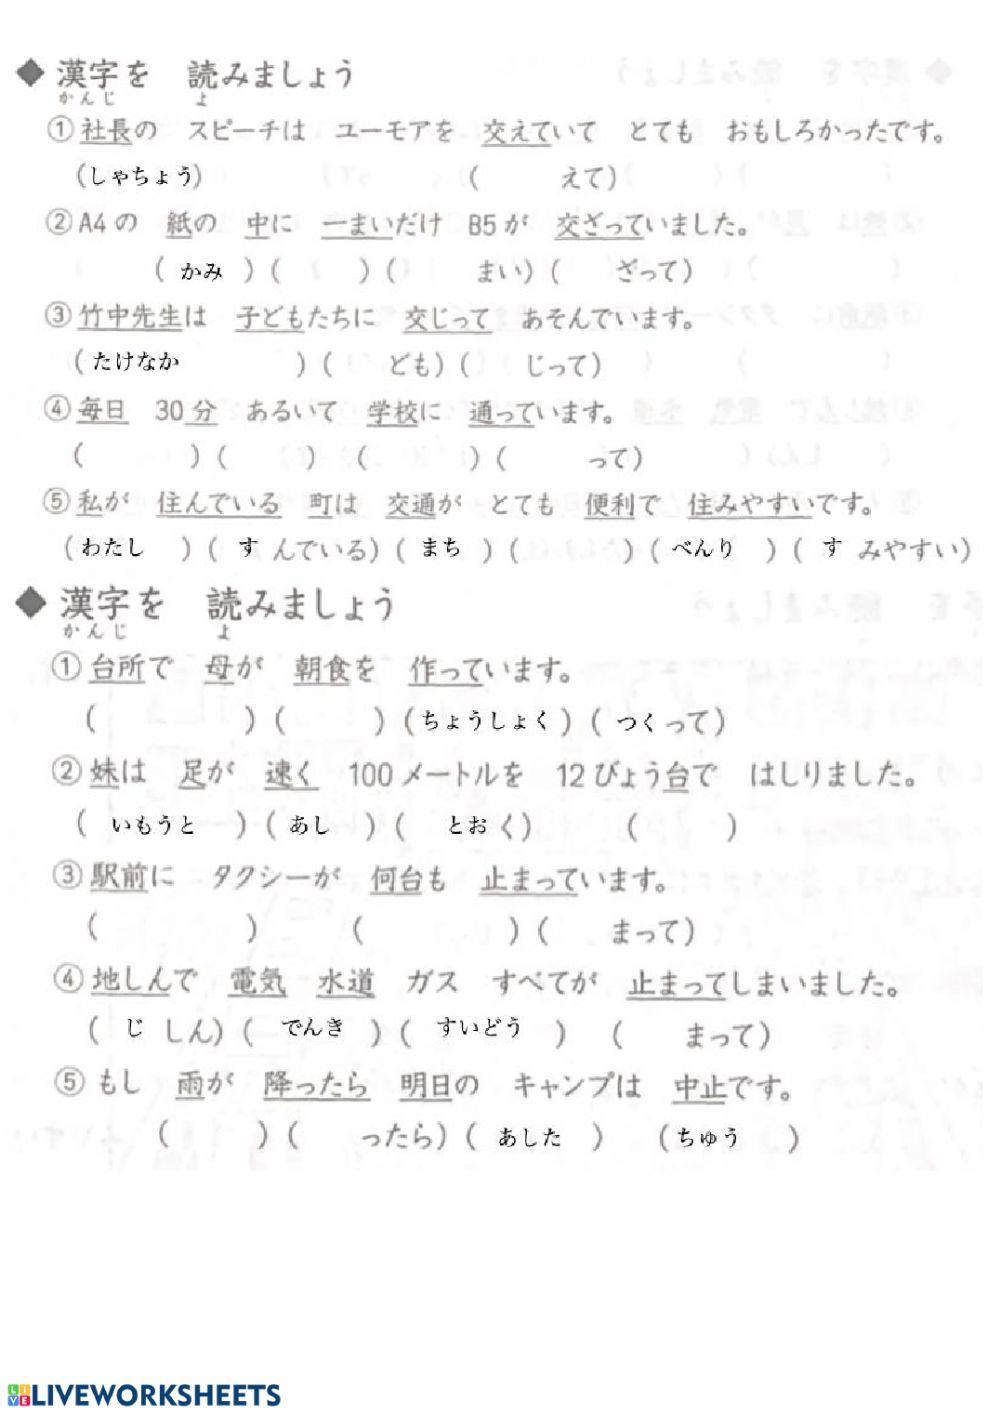 ◆ 漢字を 読みましょう
かんじ よ
①社長の スピーチは ユーモアを 交えていて とても おもしろかったです。
(しゃちょう) ( えて)
②A4の 紙の 中に 一まいだけ B5が 交ざっていました。
( かみ ) ( ) ( まい) ( ざって)
③竹中先生は 子どもたちに 交じって あそんでいます。
(たけなか ) ( ども) ( じって)
④毎日 30分 あるいて 学校に 通っています。
( ) ( ) ( ) ( って)
⑤私が 住んでいる 町は 交通が とても 便利で 住みやすいです。
(わたし ) ( す んでいる) ( まち ) ( ) ( べんり ) ( す みやすい)
◆ 漢字を 読みましょう
かんじ よ
①台所で 母が 朝食を 作っています。
( ) ( ) (ちょうしょく) ( つくって)
②妹は 足が 速く 100メートルを 12びょう台で はしりました。
( いもうと ) ( あし ) ( とおく) ( )
③駅前に タクシーが 何台も 止まっています。
( ) ( ) ( まって)
④地しんで 電気 水道 ガス すべてが 止まってしまいました。
( じ しん) ( でんき ) ( すいどう ) ( まって)
⑤もし 雨が 降ったら 明日の キャンプは 中止です。
( ) ( ったら) ( あした ) (ちゅう )
LIVEWORKSHEETS